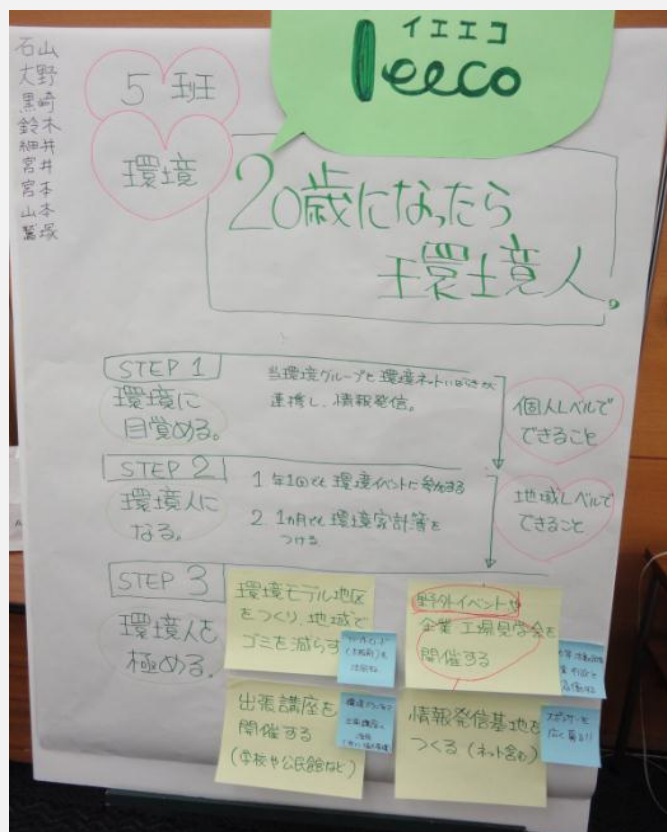 イエエコ
Ieeco
石山
大野
黒崎
鈴木
細井
宮井
宮本
山本
鷲塚
5班
環境
20歳になったら
環境人。
STEP 1
環境に
目覚める。
当環境グループと環境ネット
連携し、情報発信。
個人レベルで
できること
STEP 2
環境人に
なる。
1 年1回でも環境イベントに参加する
2 1ヵ月でも環境家計簿を
つける
地域レベルで
できること
STEP 3
環境人を
極める。
環境モデル地区
をつくり、地域で
ゴミを減らす
野外イベントや
企業・工場見学会を
開催する
出張講座を
開催する
(学校や公民館など)
情報発信基地を
つくる(ネット含む)
スポンサーを
広く募る!!